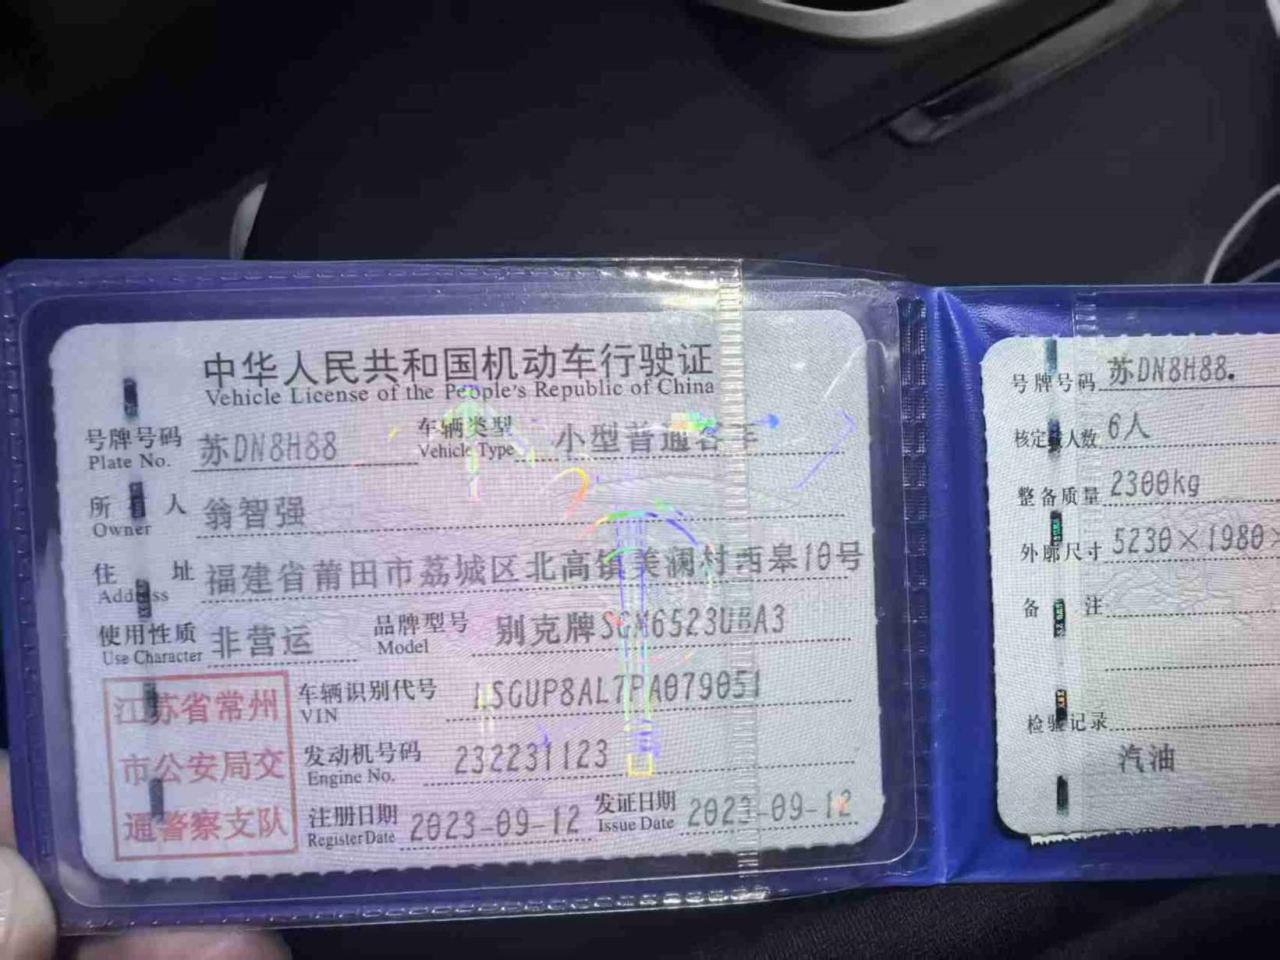 中华人民共和国机动车行驶证
Vehicle License of the People's Republic of China
号牌号码 苏DN8H88 车辆类型 小型普通客车
Plate No. Vehicle Type
所有人 翁智强
Owner
住址 福建省莆田市荔城区北高镇美澜村西皋10号
Address
使用性质 非营运 品牌型号 别克牌SGM6523UBA3
Use Character Model
江苏省常州
市公安局交
通警察支队
车辆识别代号 LSGUP8AL7PA079051
VIN
发动机号码 232231123
Engine No.
注册日期 2023-09-12 发证日期 2023-09-12
Register Date Issue Date
号牌号码 苏DN8H88.
核定载人数 6人
整备质量 2300kg
外廓尺寸 5230×1980×
备注
检验记录
汽油